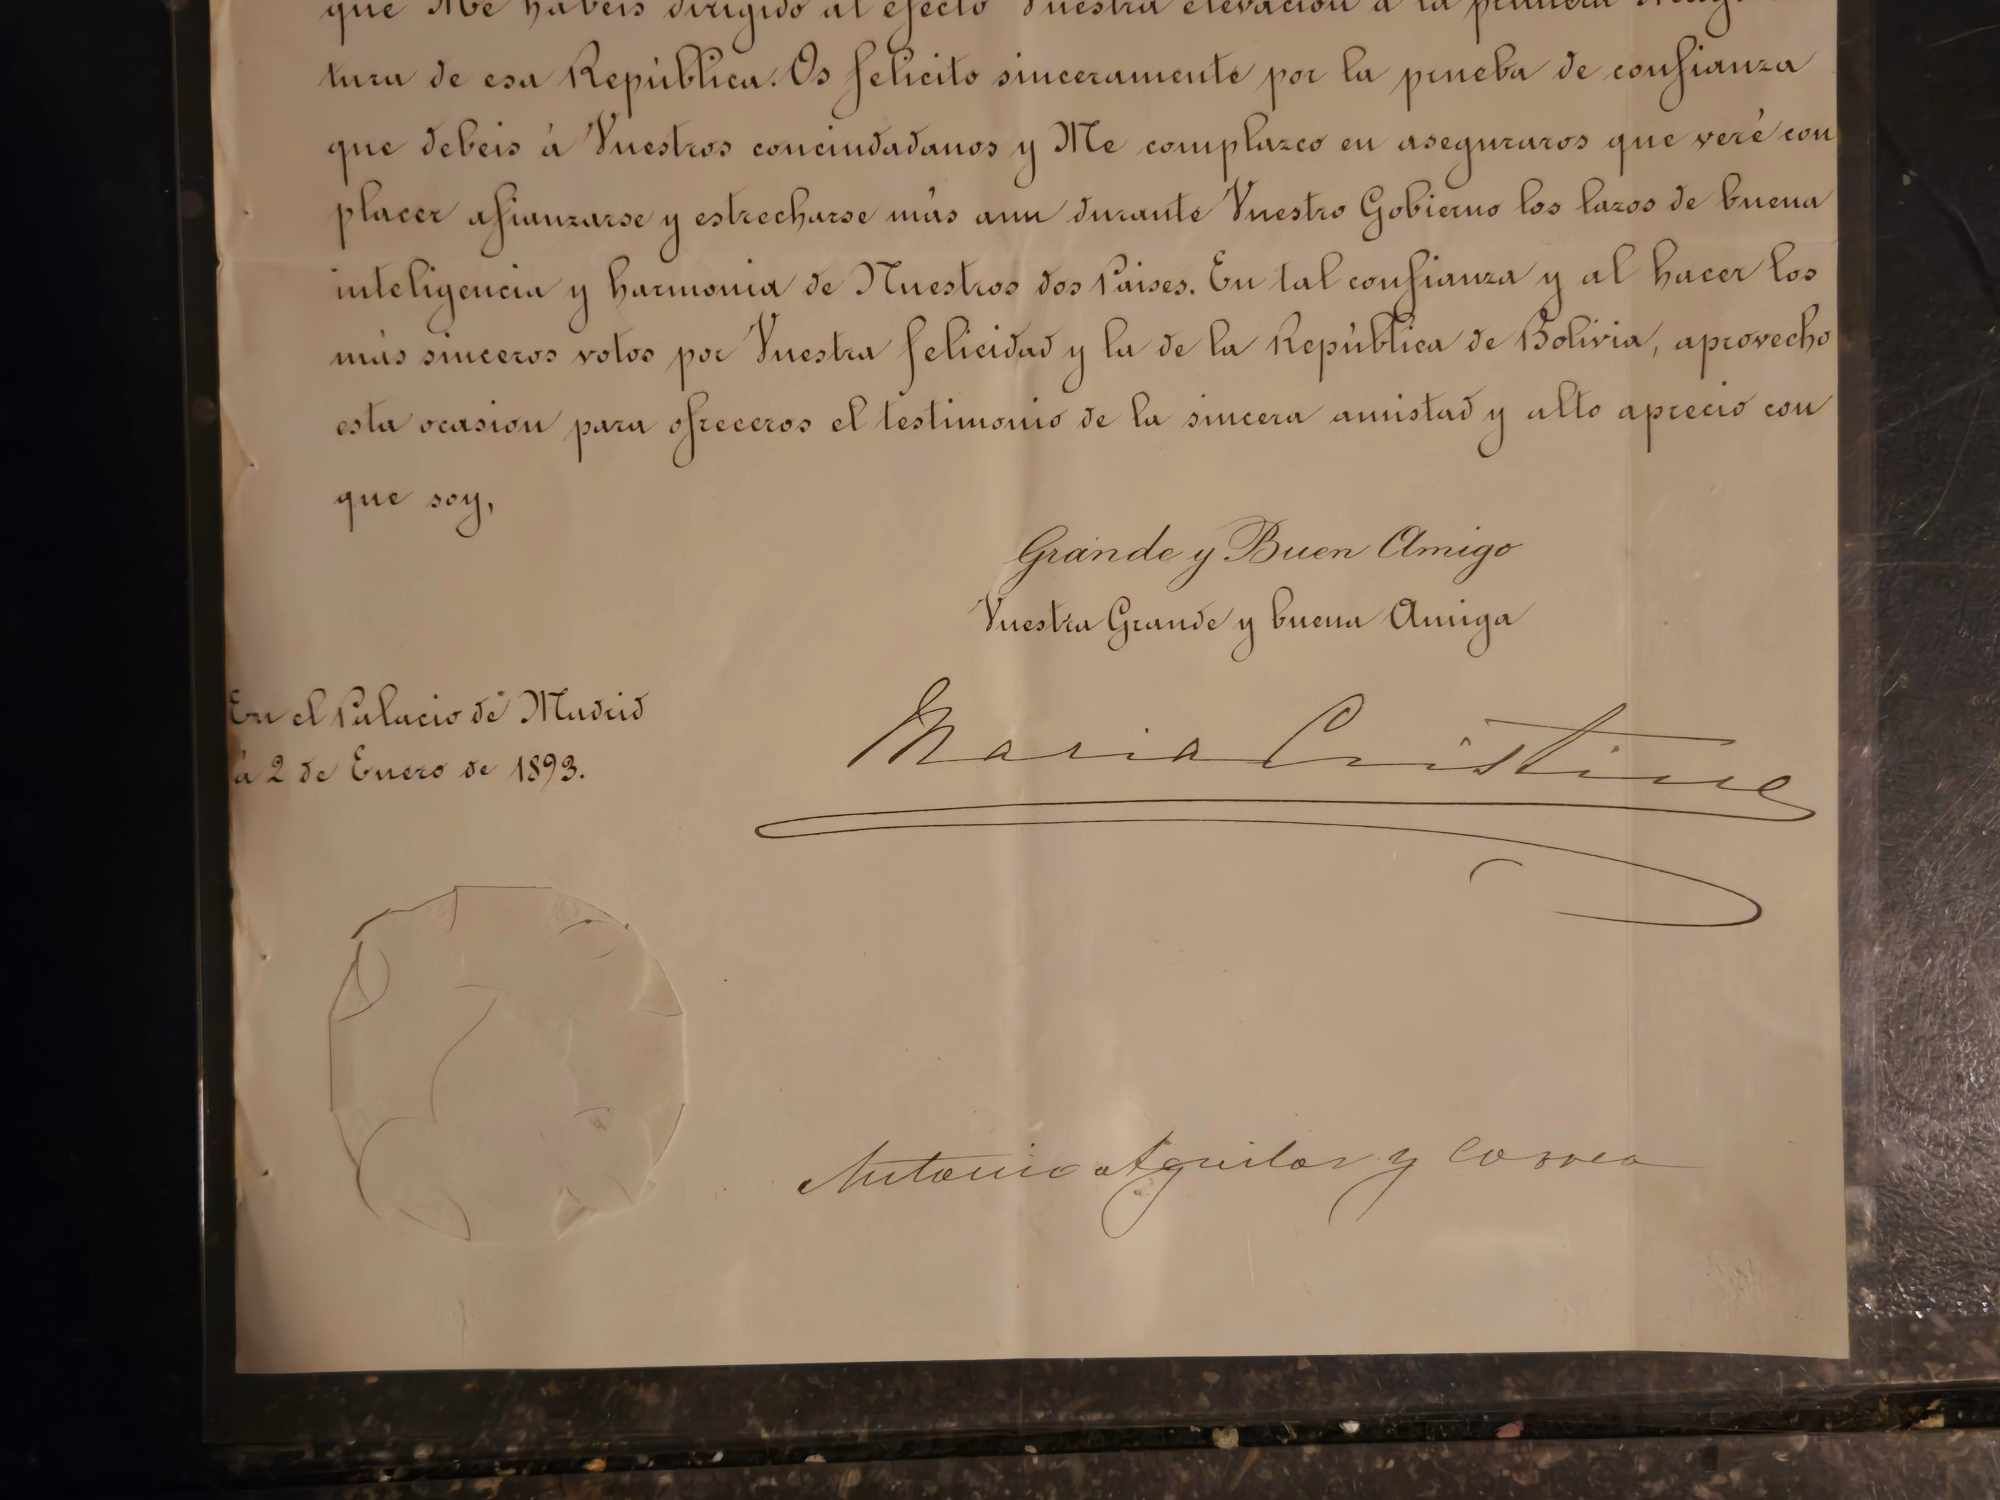 que Me habéis dirigido al efecto Vuestra elevación a la primera
tura de esa República. Os felicito sinceramente por la prueba de confianza
que debeis á Vuestros conciudadanos y Me complazco en aseguraros que veré con
placer afianzarse y estrecharse más aun durante Vuestro Gobierno los lazos de buena
inteligencia y harmonia de Nuestros dos Paises. En tal confianza y al hacer los
más sinceros votos por Vuestra felicidad y la de la República de Bolivia, aprovecho
esta ocasion para ofreceros el testimonio de la sincera amistad y alto aprecio con
que soy,
Grande y Buen Amigo
Vuestra Grande y buena Amiga
En el Palacio de Madrid
á 2 de Enero de 1893.
Maria Cristina
Antonio Aguilar y Correa